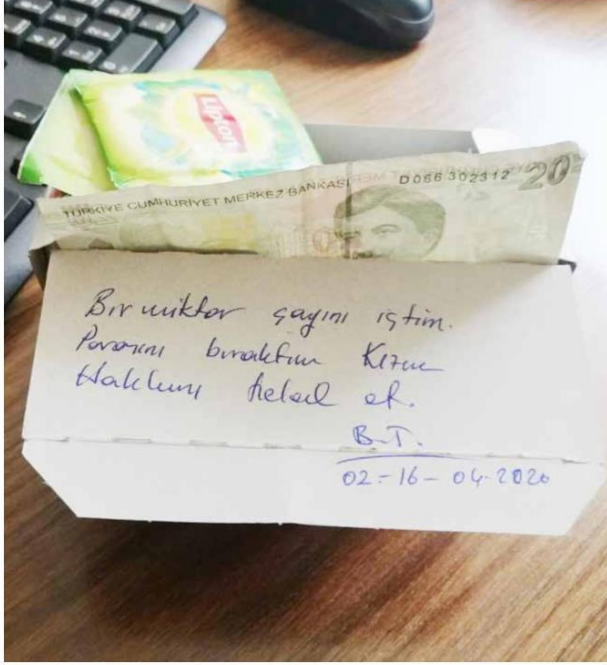 Lipton
TÜRKİYE CUMHURİYET MERKEZ BANKASI
D066 302312
20
Bir miktar çayını içtim.
Parasını bıraktım Kızım
Hakkını helal et.
B.T.
02-16-04-2020